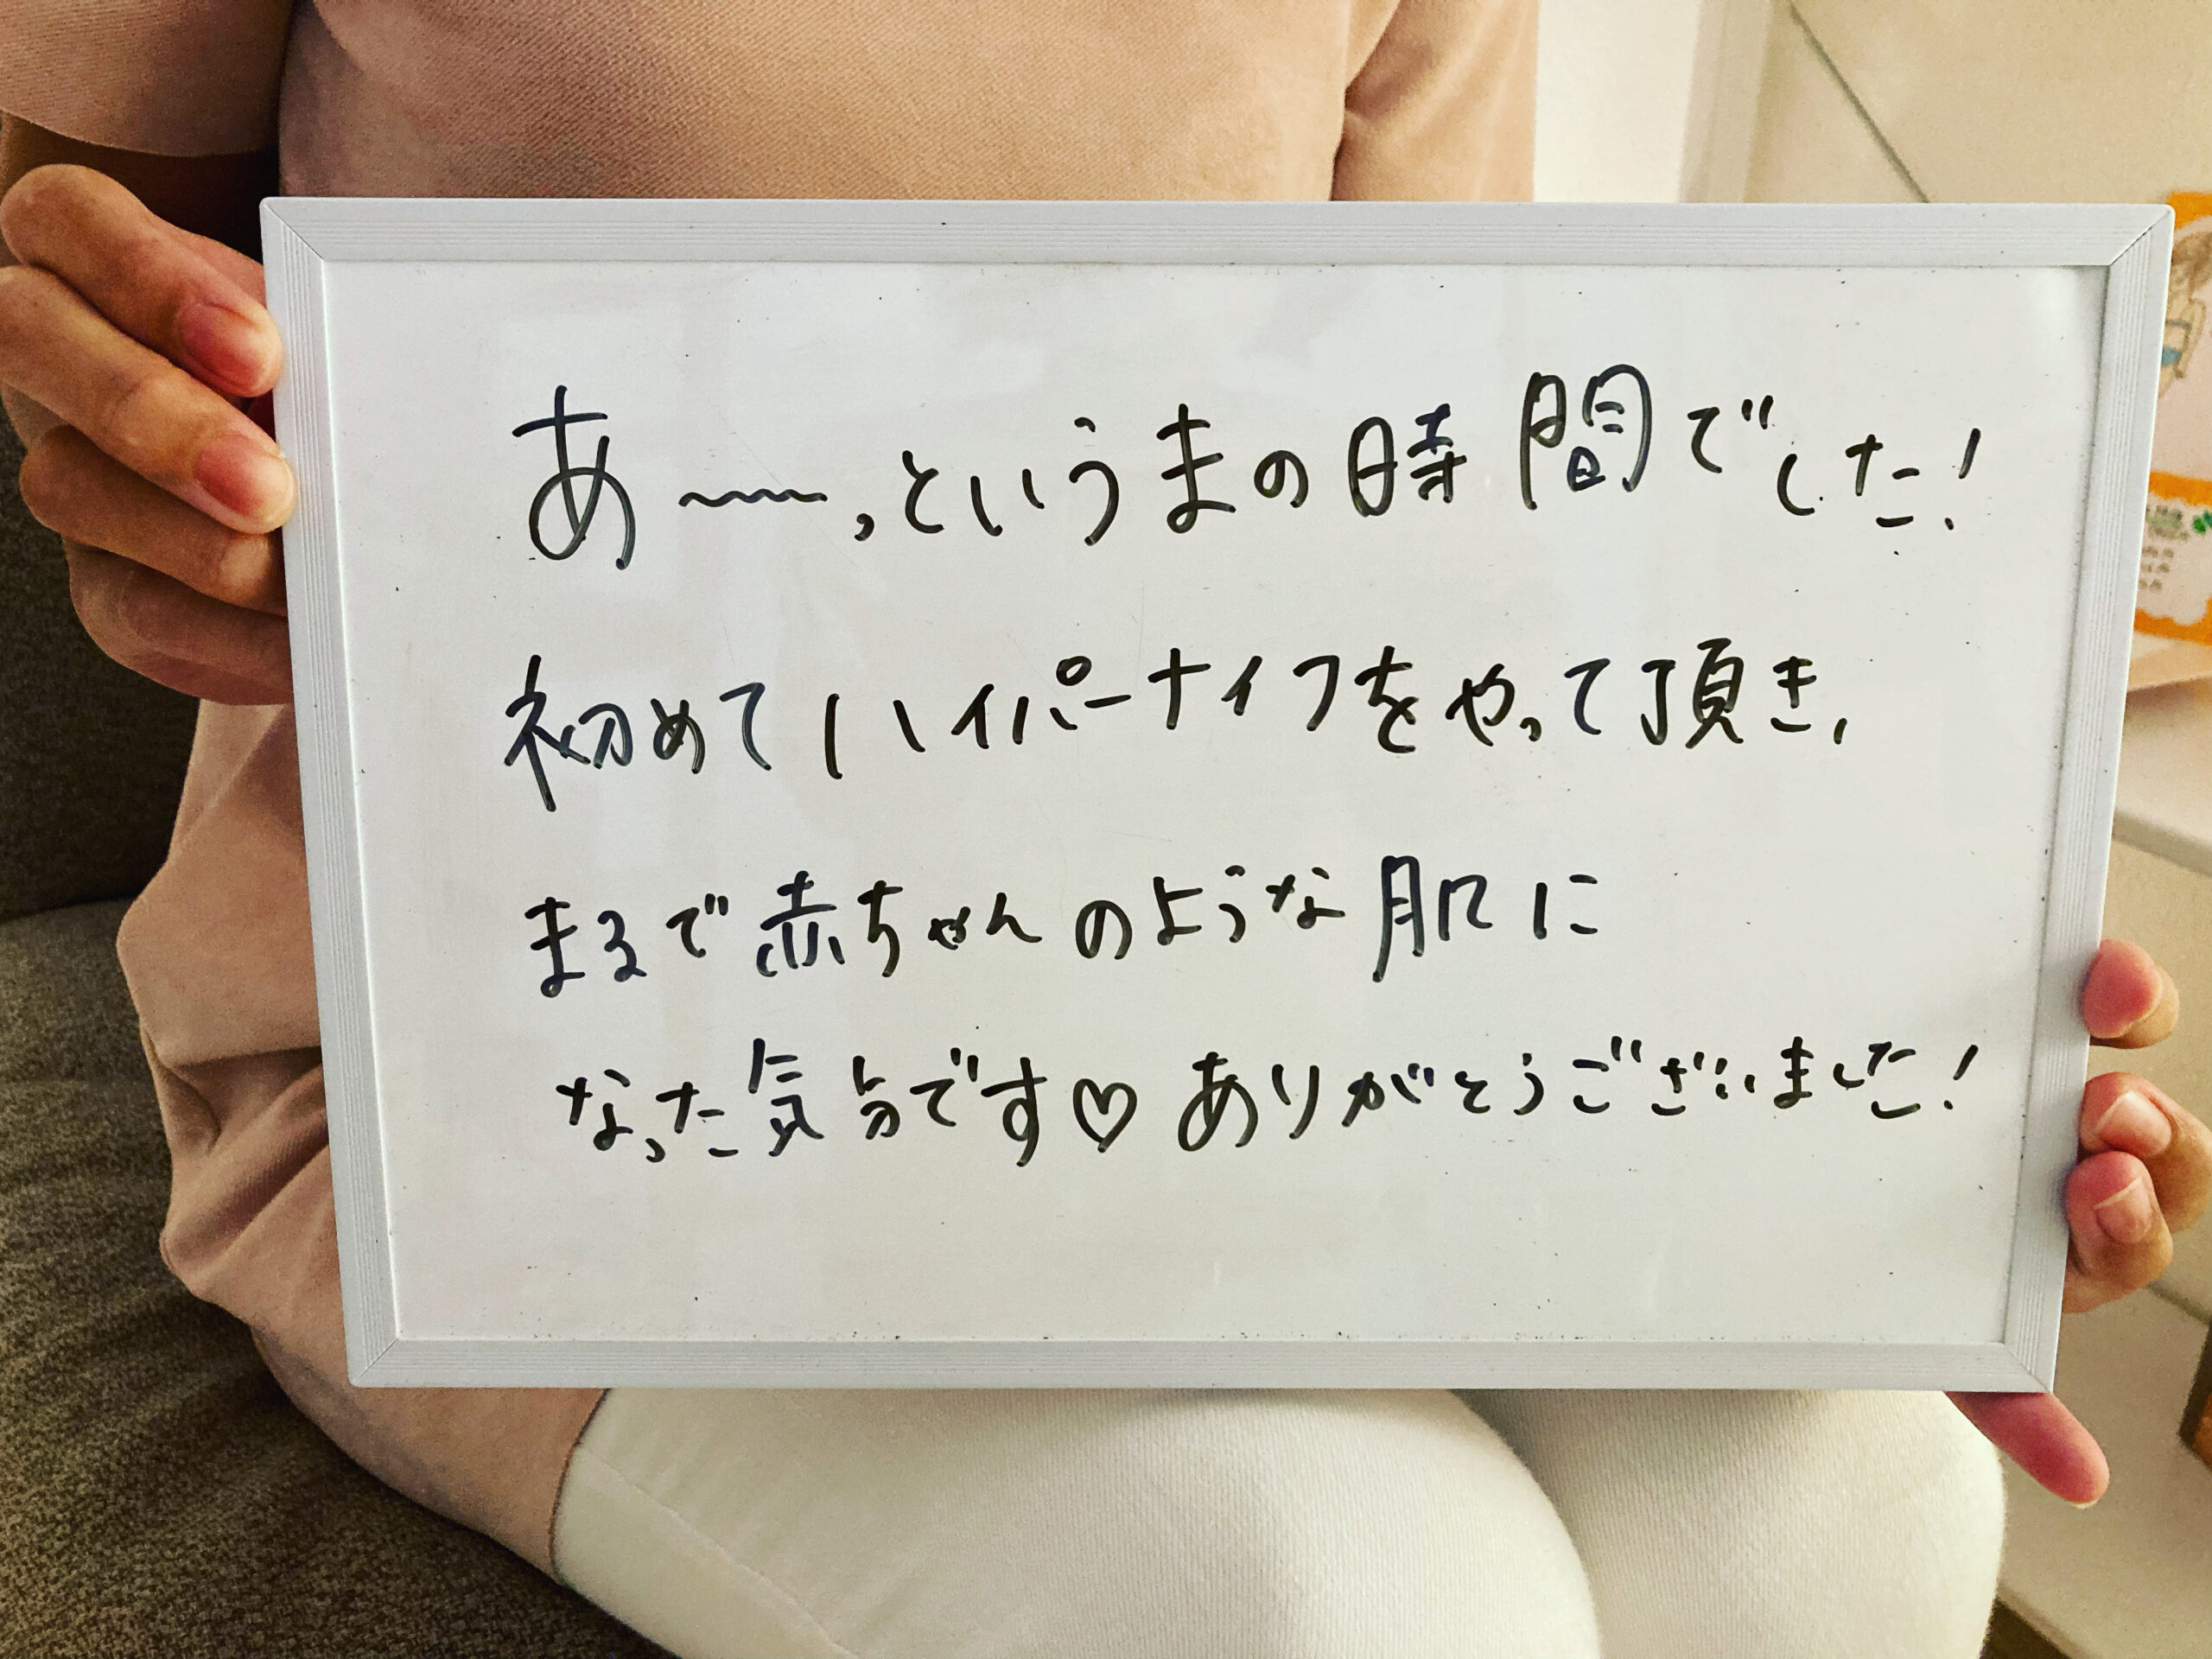 あ〜〜っというまの時間でした!
初めてハイパーナイフをやって頂き、
まるで赤ちゃんのような肌に
なった気分です♡ ありがとうございました!